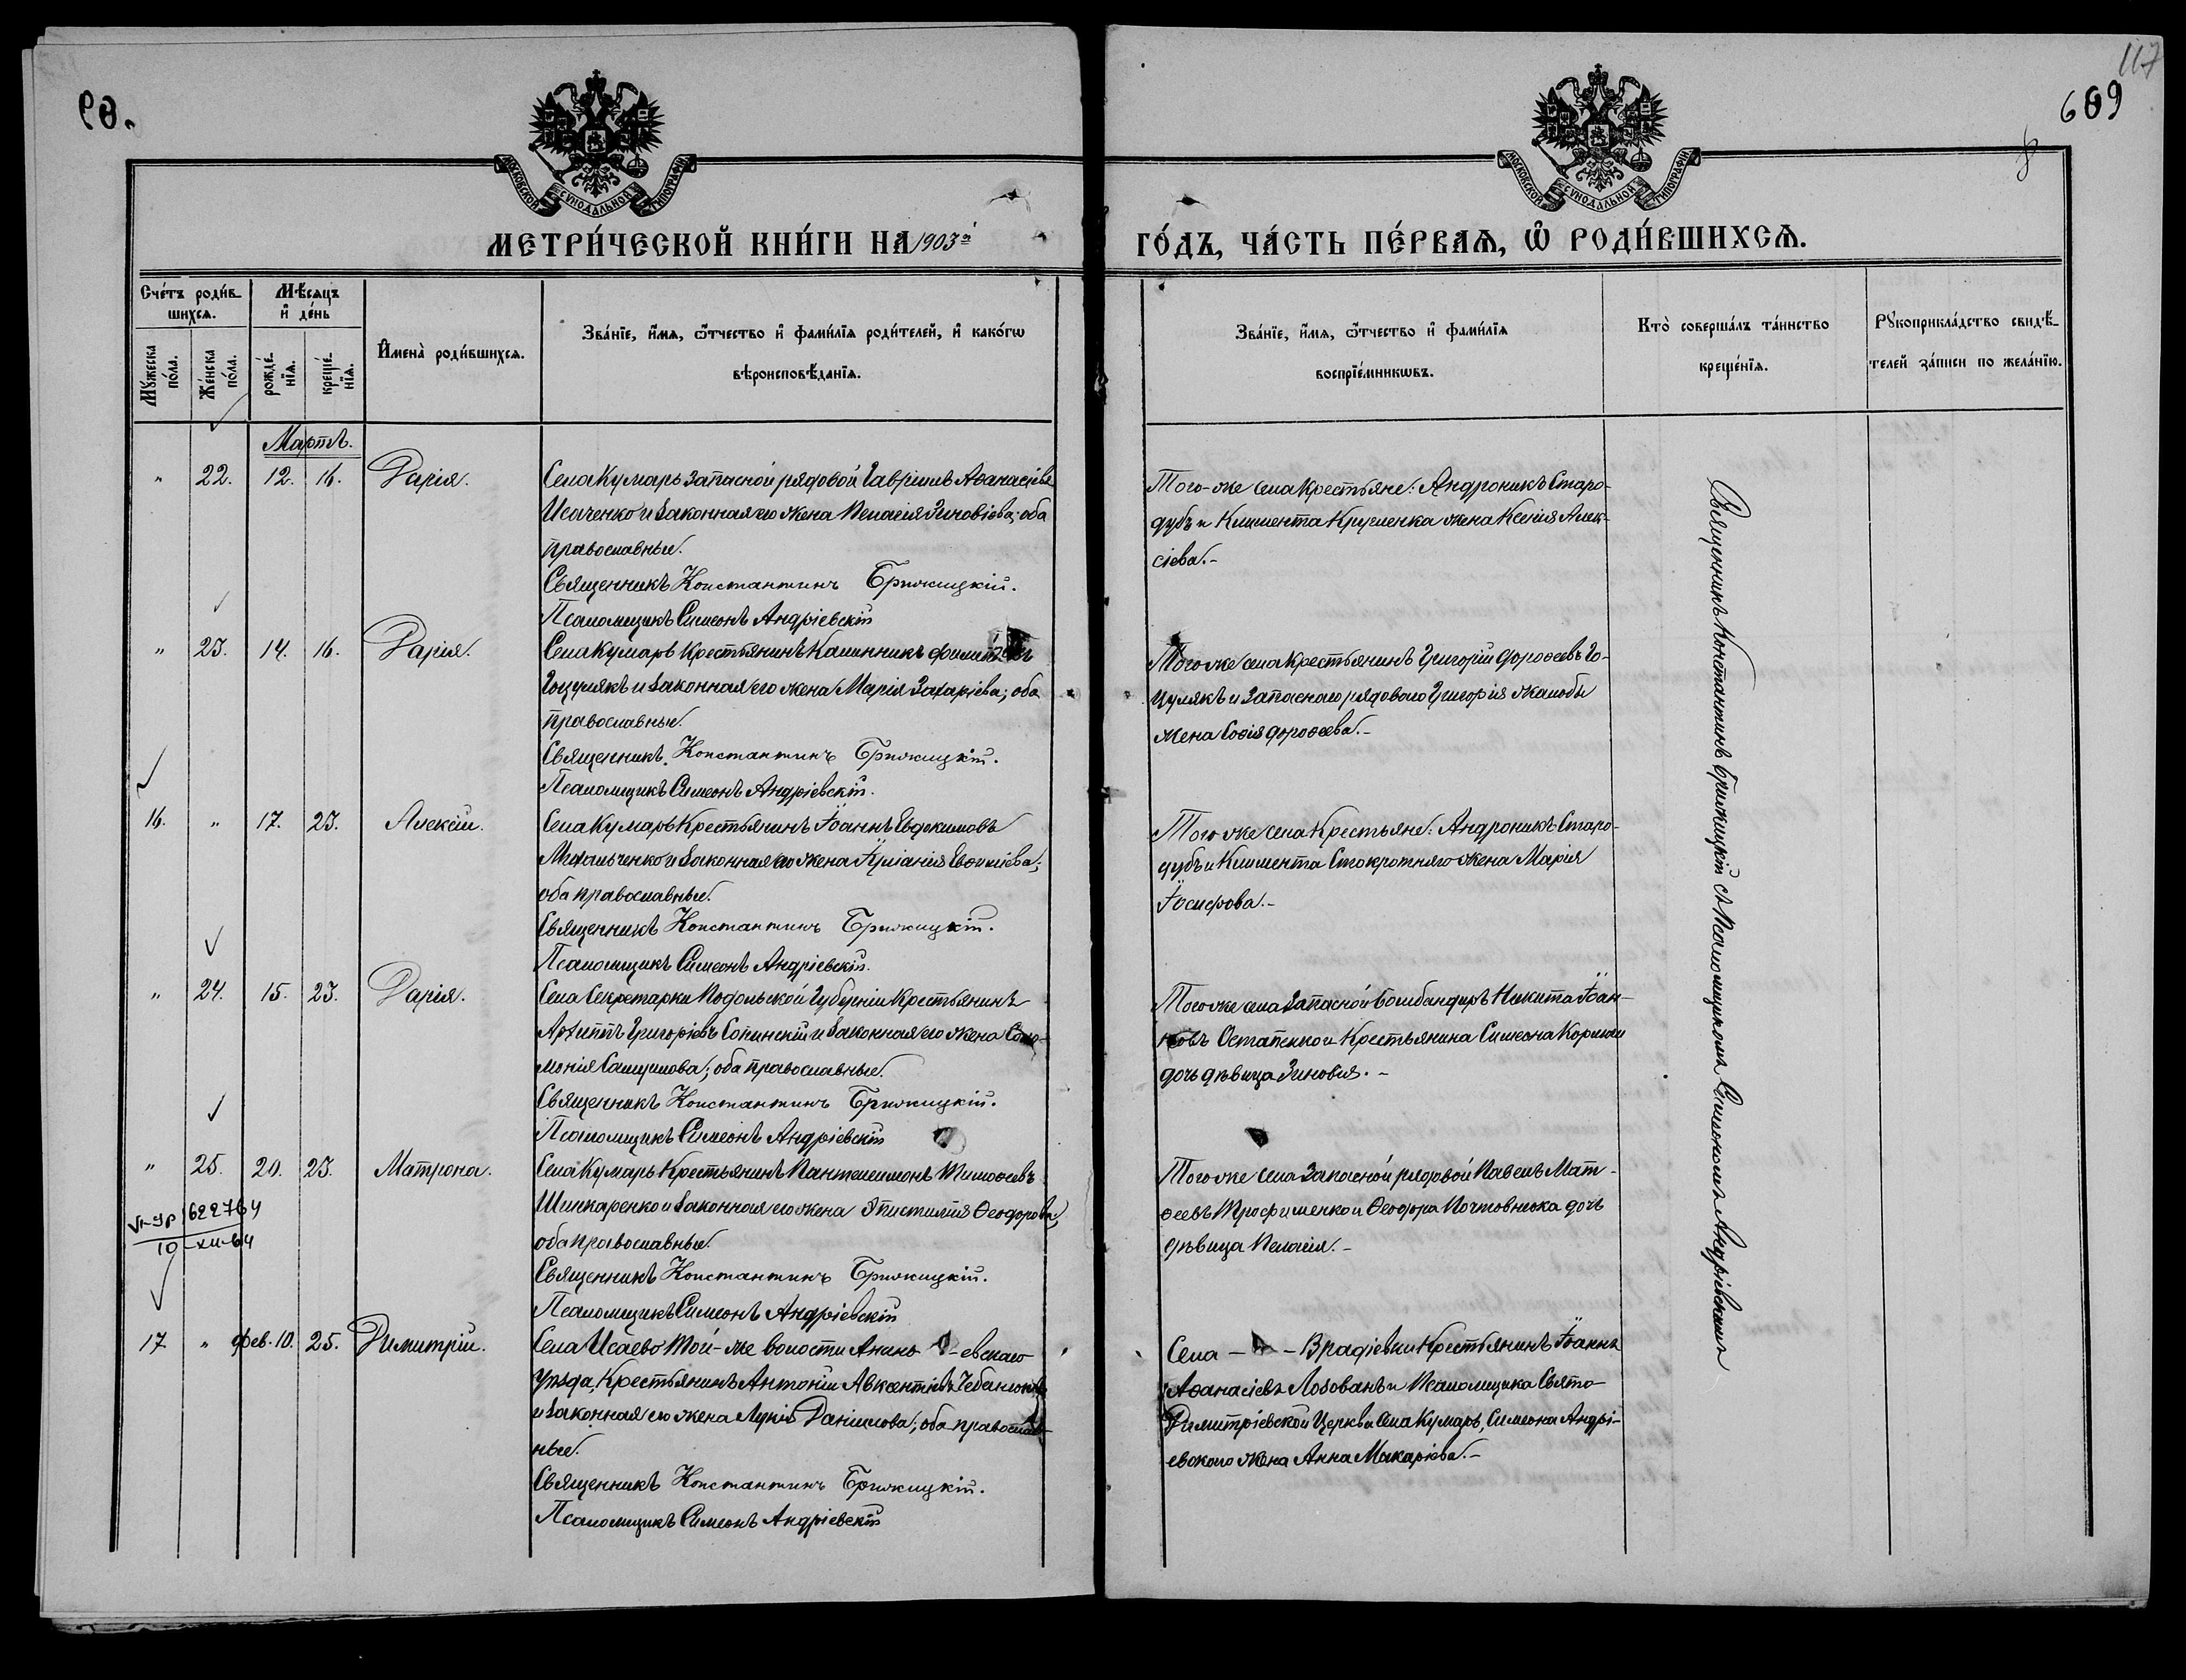 117
609
МОСКОВСКОЙ СѴНОДАЛЬНОЙ ТИПОГРАФІИ
МОСКОВСКОЙ СѴНОДАЛЬНОЙ ТИПОГРАФІИ
МЕТРИ́ЧЕСКОЙ КНИ́ГИ НА 1903й
ГО́ДЪ, ЧА́СТЬ ПЕ́РВАѦ, Ѡ҆ РОДИ́ВШИХСѦ.
Сче́тъ роди́в-
шихсѧ.
Мꙋ́жеска по́ла.
Же́нска по́ла.
Мѣ́сѧцъ
и҆ де́нь
рожде́-нїѧ.
креще́-нїѧ.
И҆мена̀ роди́вшихсѧ.
Зва́нїе, и҆́мѧ, ѻ҆́тчество и҆ фами́лїѧ роди́телей, и҆ како́гѡ
вѣроисповѣ́данїѧ.
Зва́нїе, и҆́мѧ, ѻ҆́тчество и҆ фами́лїѧ
воспрїе́мникѡвъ.
Кто̀ соверша́лъ та́инство
креще́нїѧ.
Рꙋкоприкла́дство свидѣ́-
телей за́писи по жела́нїю.
Мартъ.
" 22. 12. 16. Дарія.
Села Кумаръ запасной рядовой Гавріилъ Аѳанасіевъ
Исаченко и законная его жена Пелагія Зиновіева; оба
православные.
Священникъ Константинъ Бржицкій.
Псаломщикъ Симеонъ Андріевскій
Того-же села крестьяне: Андроникъ Старо-
дубъ и Климента Кругленка жена Ксенія Алек-
сіева.-
" 23. 14. 16. Дарія.
Села Кумаръ крестьянинъ Калинникъ
Гоцулякъ и законная его жена Марія Захаріева; оба
православные.
Священникъ Константинъ Бржицкій.
Псаломщикъ Симеонъ Андріевскій.
Того же села крестьянинъ Григорій Дороѳеевъ Го-
цулякъ и запасного рядового Григорія Жалобы
жена Софія Дороѳеева.-
16. " 17. 23. Алексій.
Села Кумаръ крестьянинъ Іоаннъ Евдокимовъ
Михальченко и законная его жена Іуліанія Евѳиміева;
оба православные.
Священникъ Константинъ Бржицкій.
Псаломщикъ Симеонъ Андріевскій.
Того же села крестьяне: Андроникъ Старо-
дубъ и Климента Стокротняго жена Марія
Іосифова.-
" 24. 15. 23. Дарія.
Села Секретарки Подольской Губерніи крестьянинъ
Архиппъ Григоріевъ Сопинскій и законная его жена Соло-
монія Самуилова; оба православные.
Священникъ Константинъ Бржицкій.
Псаломщикъ Симеонъ Андріевскій
Того же села запасной бомбандиръ Никита Іоан-
новъ Остапенко и крестьянина Симеона
дочь дѣвица Зиновія.-
" 25. 20. 23. Матрона.
Села Кумаръ крестьянинъ Пантелеимонъ Тимоѳеевъ
Шинкаренко и законная его жена Епистимія Ѳеодорова,
оба православные.
Священникъ Константинъ Бржицкій.
Псаломщикъ Симеонъ Андріевскій
622764
10-XII-64
Того же села запасной рядовой Павелъ Мат-
ѳеевъ Трофименко и Ѳеодора Почтовнюка дочь
дѣвица Пелагія.-
17 " Фев. 10. 25. Димитрій.
Села Исаево той-же волости Анань - евскаго
уѣзда крестьянинъ Антоній Авксентіевъ Чебанюкъ
и законная его жена Лукія Даніилова; оба православ-
ные.
Священникъ Константинъ Бржицкій.
Псаломщикъ Симеонъ Андріевскій
Села - - Врадіевки крестьянинъ Іоаннъ
Аѳанасіевъ Лобованъ и псаломщика Свято-
Димитріевской церкви села Кумаръ, Симеона Андрі-
евского жена Анна Макаріева.-
Священникъ Константинъ Бржицкій съ псаломщикомъ Симеономъ Андріевскимъ